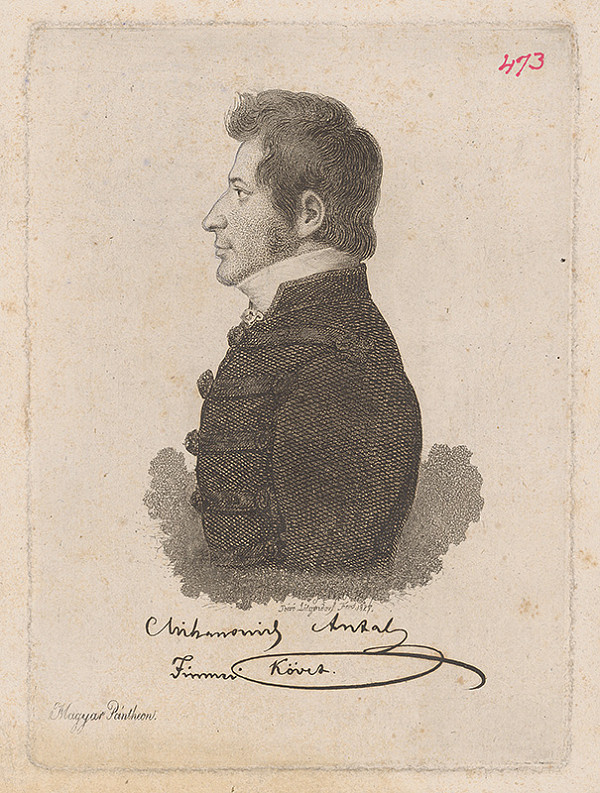 473
Lütgendorf Ferd. 1827.
Mihanovich Antal
Fiumei Követ.
Magyar Pántheon.